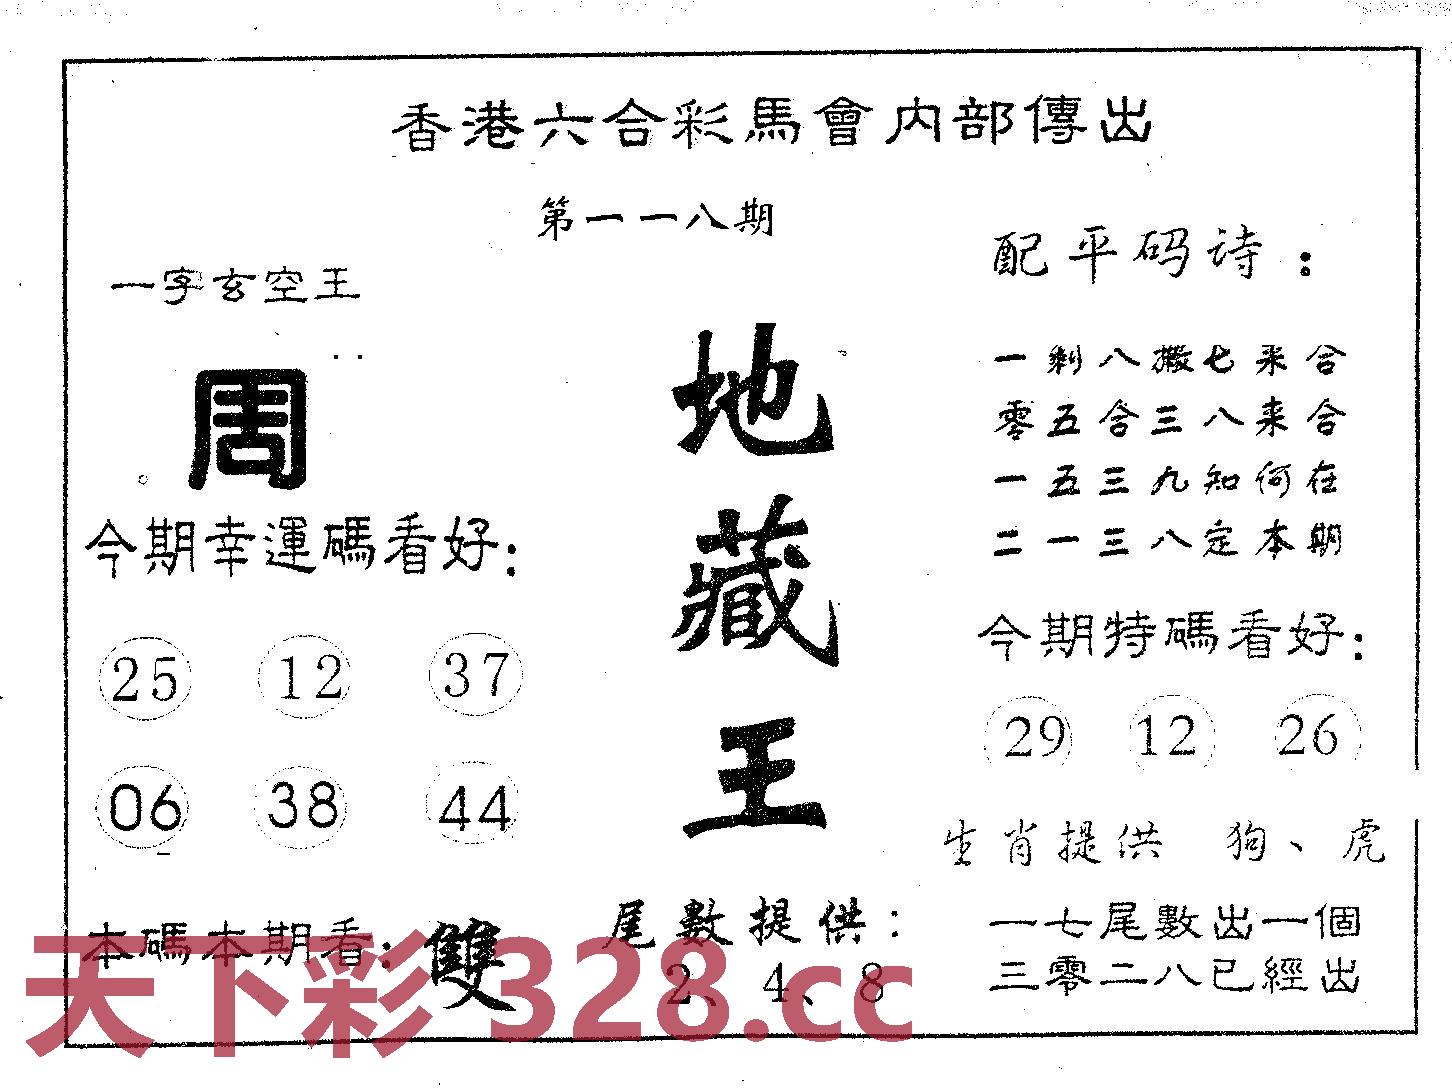 香港六合彩馬會内部傳出
第一一八期
一字玄空王
周
今期幸運碼看好:
25 12 37
06 38 44
本碼本期看: 雙
地藏王
尾數提供:
2、4、8
配平码诗:
一剩八搬七来合
零五合三八来合
一五三九知何在
二一三八定本期
今期特碼看好:
29 12 26
生肖提供 狗、虎
一七尾數出一個
三零二八已經出
天下彩 328.cc